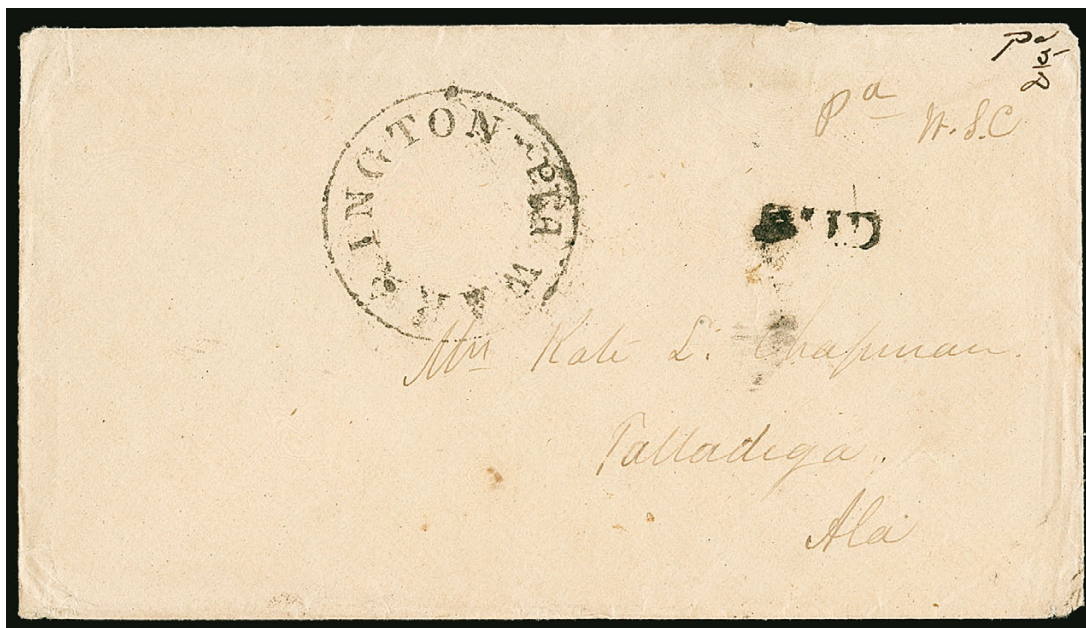 Pd
5
Pd W.S.C
WARRINGTON FLA
PAID
Mrs Kate L. Chapman.
Talladega.
Ala